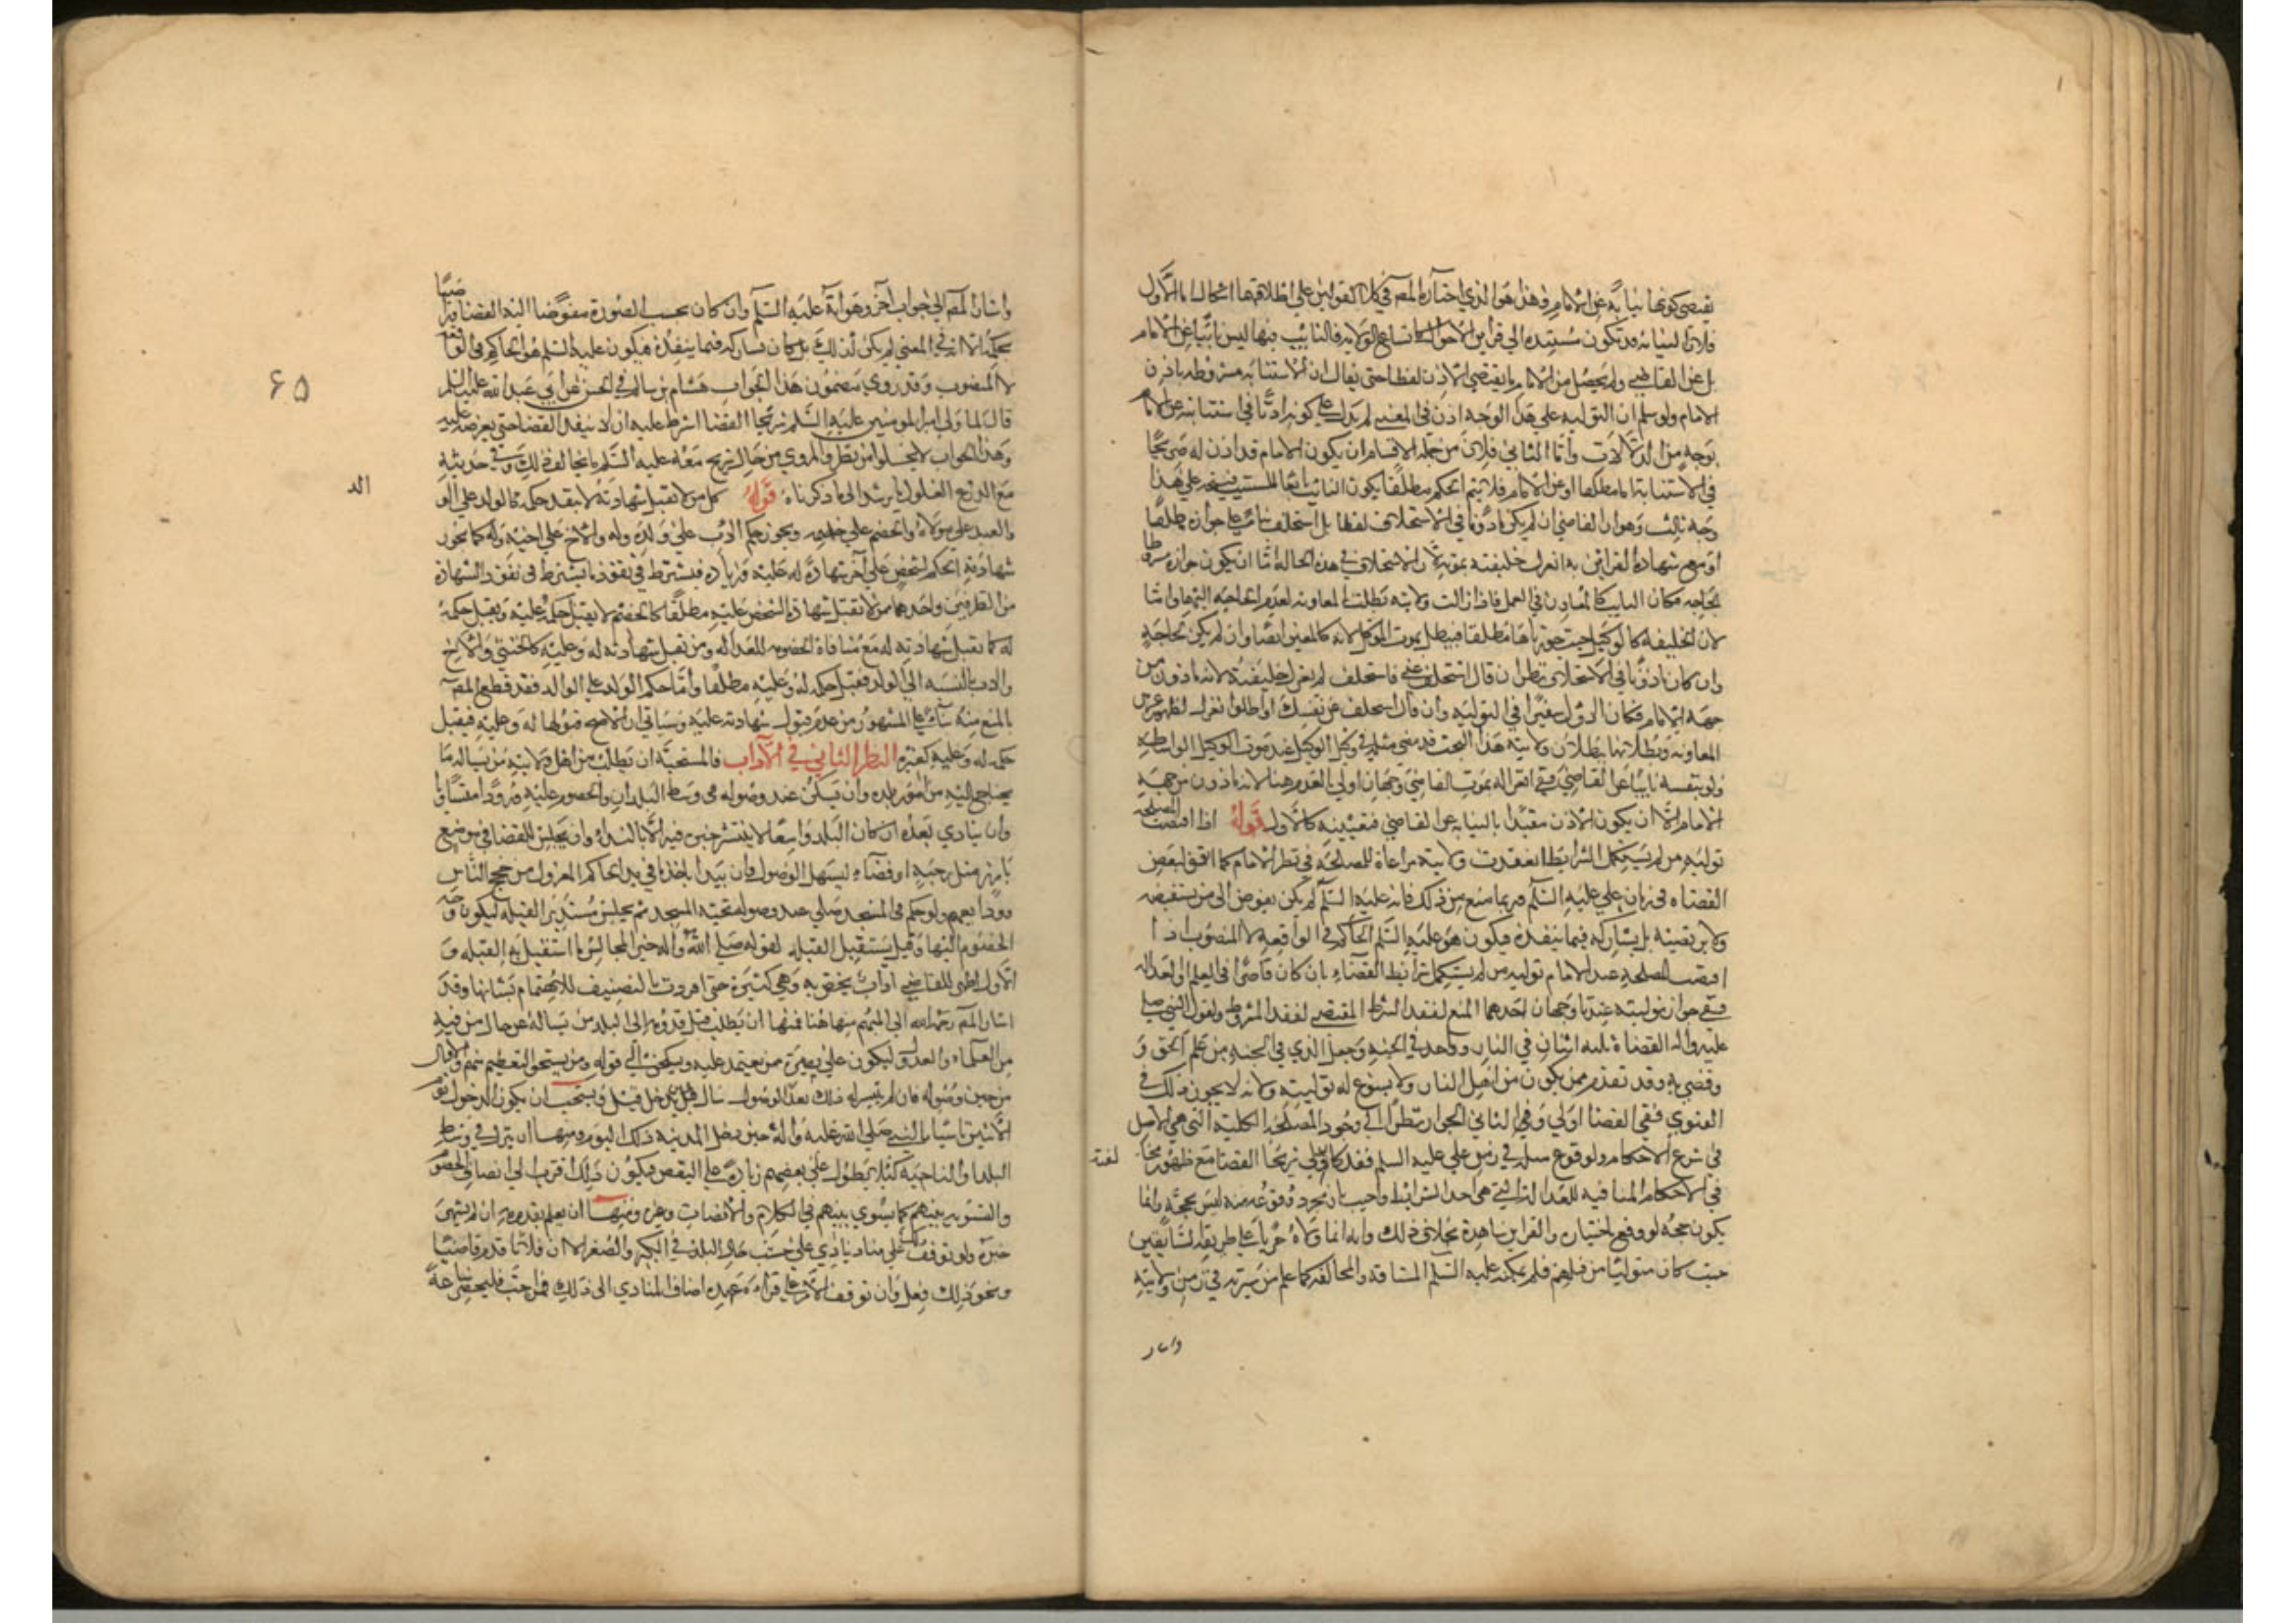 تقتضي كونها نيابة عن الامام وهذا هو الذي اختاره المص وفي كلا القولين على اطلاقهما اشكال اما الاول
فلان النيابة قد تكون مستندة الى قرائن الاحوال كاتساع الولاية فالنائب فيها ليس نائبا عن الامام
بل عن القاضي ولم يحصل من الامام ما يقتضي الاذن لفظا حتى يقال ان الاستنابة مشروطة باذن
الامام ولو سلم ان التولية على هذا الوجه اذن في المعنى لم يدل على كونه اذنا في استنابته عن الامام
بوجه من الدلالات واما الثاني فلان من جملة الاقسام ان يكون الامام قد اذن له صريحا
في الاستنابة اما مطلقا او عن الامام فلا يتم الحكم مطلقا بكون النائب تابعا للمستنيب فيتجه على هذا
وجه ثالث وهو ان القاضي ان لم يكن ماذونا في الاستخلاف لفظا بل استخلف بناء على جوازه مطلقا
او مع شهادة القرائن به انعزل خليفته بموته لان الاستخلاف في هذه الحالة اما ان يكون جوازه مشروطا
بالحاجة فكان النايب كالمعاون في العمل فاذا زالت ولايته بطلت المعاونة لعدم الحاجة اليها واما
لان الخليفة كالوكيل حيث جوزناها مطلقا فيبطل بموت الموكل لانه كالمعين ايضا وان لم يكن لحاجة
وان كان ماذونا في الاستخلاف نظر ان قال استخلف عني فاستخلف لم ينعزل خليفته لانه ماذون من
جهة الامام فكان الاول سفيرا في التولية وان قال استخلف عن نفسك او اطلق انعزل لظهور غرض
المعاونة وبطلانها ببطلان ولايته هذا البحث قد مضى مثله في وكيل الوكيل عند موت الوكيل الواسطة
ولو نصبه نائبا عن القاضي ففي انعزاله بموت القاضي وجهان اولى بالعدم هنا لانه ماذون من جهة
الامام الا ان يكون الاذن مقيدا بالنيابة عن القاضي فتعينه كالاول قوله اذا اقتضت المصلحة
تولية من لم يستكمل الشرائط انعقدت ولايته مراعاة للمصلحة في نظر الامام كما اتفق لبعض
القضاة في زمان علي عليه السلم وربما منع من ذلك فانه عليه السلم لم يكن يفوض الى من يستقضيه
ولا يرتضيه بل يشاركه فيما ينفذه فيكون هو عليه السلم الحاكم في الواقعة لا المنصوب اذا
اقتضت المصلحة عند الامام تولية من لم يستكمل شرائط القضاء بان كان قاصرا في العلم او العدالة
ففي جواز توليته عندنا وجهان احدهما المنع لفقد الشرط المقتضي لفقد المشروط ولقول النبي صلى
عليه واله القضاة ثلثة اثنان في النار وواحد في الجنة وجعل الذي في الجنة من علم الحق و
وقضى به وقد تقدم فمن يكون من اهل النار ولا يسوغ له توليته ولانه لا يجوز ذلك في
الفتوى ففي القضا اولى وفي الثاني الجواز نظرا الى وجود المصلحة الكلية التي هي الاصل
في شرع الاحكام ولوقوع مثله في زمن علي عليه السلم فقد كان ولي شريحا القضا مع ظهور مخا لفته
في الاحكام المنافية للعدالة التي هي احد الشرائط واجيب بان مجرد وقوعه منه ليس بحجة وانما
يكون حجة لو وقع اختياره والقراين شاهدة بخلاف ذلك وانه انما ولاه جريا على طريقة السابقين
حيث كان متوليا من قبلهم فلم يمكنه عليه السلم المشاقة والمخالفة كما علم من سيرته في زمن ولايته
واشار
واشار المص الى جواب اخر وهو انه عليه السلم وان كان بحسب الصورة مفوضا اليه القضا وراضيا
بحكمه الا انه في المعنى لم يكن كذلك بل كان يشاركه فيما ينفذه فيكون عليه السلم هو الحاكم في الواقعة
لا المنصوب وقد روي مضمون هذا الجواب هشام بن سالم في الحسن عن ابي عبد الله عليه السلم
قال لما ولى امير المومنين عليه السلم شريحا القضا اشرط عليه ان لا ينفذ القضا حتى يعرضه عليه
وهذا الجواب لا يخلو من نظر والمروي من حال شريح معه عليه السلم ما يخالف ذلك وفي حديثه
مع الدرع الغلول ما يرشد الى ما ذكرناه قوله كل من لا تقبل شهادته لا ينفذ حكمه كالولد على الوالد
والعبد على مولاه والخصم على خصمه ويجوز حكم الاب على ولده وله والاخ على اخيه وله كما يجوز
شهادته الحكم لشخص على آخر شهادة له وعليه وزيادة فيشترط في نفوذه ما يشترط في نفوذ الشهادة
من الطرفين واحدهما من لا تقبل شهادة الشخص عليه مطلقا كالخصم لا يقبل حكمه عليه ويقبل حكمه
له كما تقبل شهادته له مع منافاة الخصومة للعدالة ومن تقبل شهادته له وعليه كالاجنبي والاخ
والاب بالنسبة الى الولد فيقبل حكمه له وعليه مطلقا واما حكم الولد على الوالد فقد قطع المص
بالمنع منه بناء على المشهور من عدم قبول شهادته عليه وسياتي ان الاصح قبولها له وعليه فيقبل
حكمه له وعليه كغيره النظر الثاني في الآداب فالمستحبة ان يطلب من اهل ولايته من يساله عما
يحتاج اليه من امور بلده وان يسكن عند وصوله في وسط البلد لترد الخصوم عليه ورودا متساويا
وان ينادى بعده ان كان البلد واسعا لا ينتشر خبره فيه الا بالنداء وان يجلس للقضا في موضع
بارز مثل رحبة او فضاء ليسهل الوصول وان يبدا باخذ ما في يد الحاكم المعزول من حجج الناس
وودايعهم ولو حكم في المسجد صلى عند وصوله تحية المسجد ثم يجلس مستدبر القبلة ليكون وجه
الخصوم اليها وقيل يستقبل القبلة لقوله صلى الله عليه واله خير المجالس ما استقبل به القبلة و
الاول اظهر للقاضي اداب يختص به وهي كثيرة حتى افردت بالتصنيف للاهتمام بشانها وقد
اشار المص رحمه الله الى المهم منها هنا فمنها ان يطلب قبل قدومه الى البلد من يساله عن حال من فيه
من العلماء والعدول ليكون على بصيرة ممن يعتمد عليه ويسكن الى قوله ومن يستحق التعظيم منهم والاقبال
من حين وصوله فان لم يتيسر له ذلك بعد الوصول سال قبل ان يدخل قيل ويستحب ان يكون الدخول يوم
الاثنين تاسيا بالنبي صلى الله عليه واله حين دخل المدينة ذلك اليوم ومنها ان ينزل في وسط
البلد او الناحية كيلا يطول على بعضهم زيادة على البعض فيكون ذلك اقرب الى انصاف الخصوم
والتسوية بينهم كما يسوي بينهم في الكلام والانصات وغيره ومنها ان يعلم بقدومه ان لم يشتهر
خبره ولو توقف ذلك على مناد ينادي على حسب حال البلد في الكبر والصغر الا ان فلانا قدم قاضيا
ونحو ذلك فعل وان توقف الامر على قراءة عهده اضاف المنادي الى ذلك فمن احب فليحضر ساعة
الد
۶۵